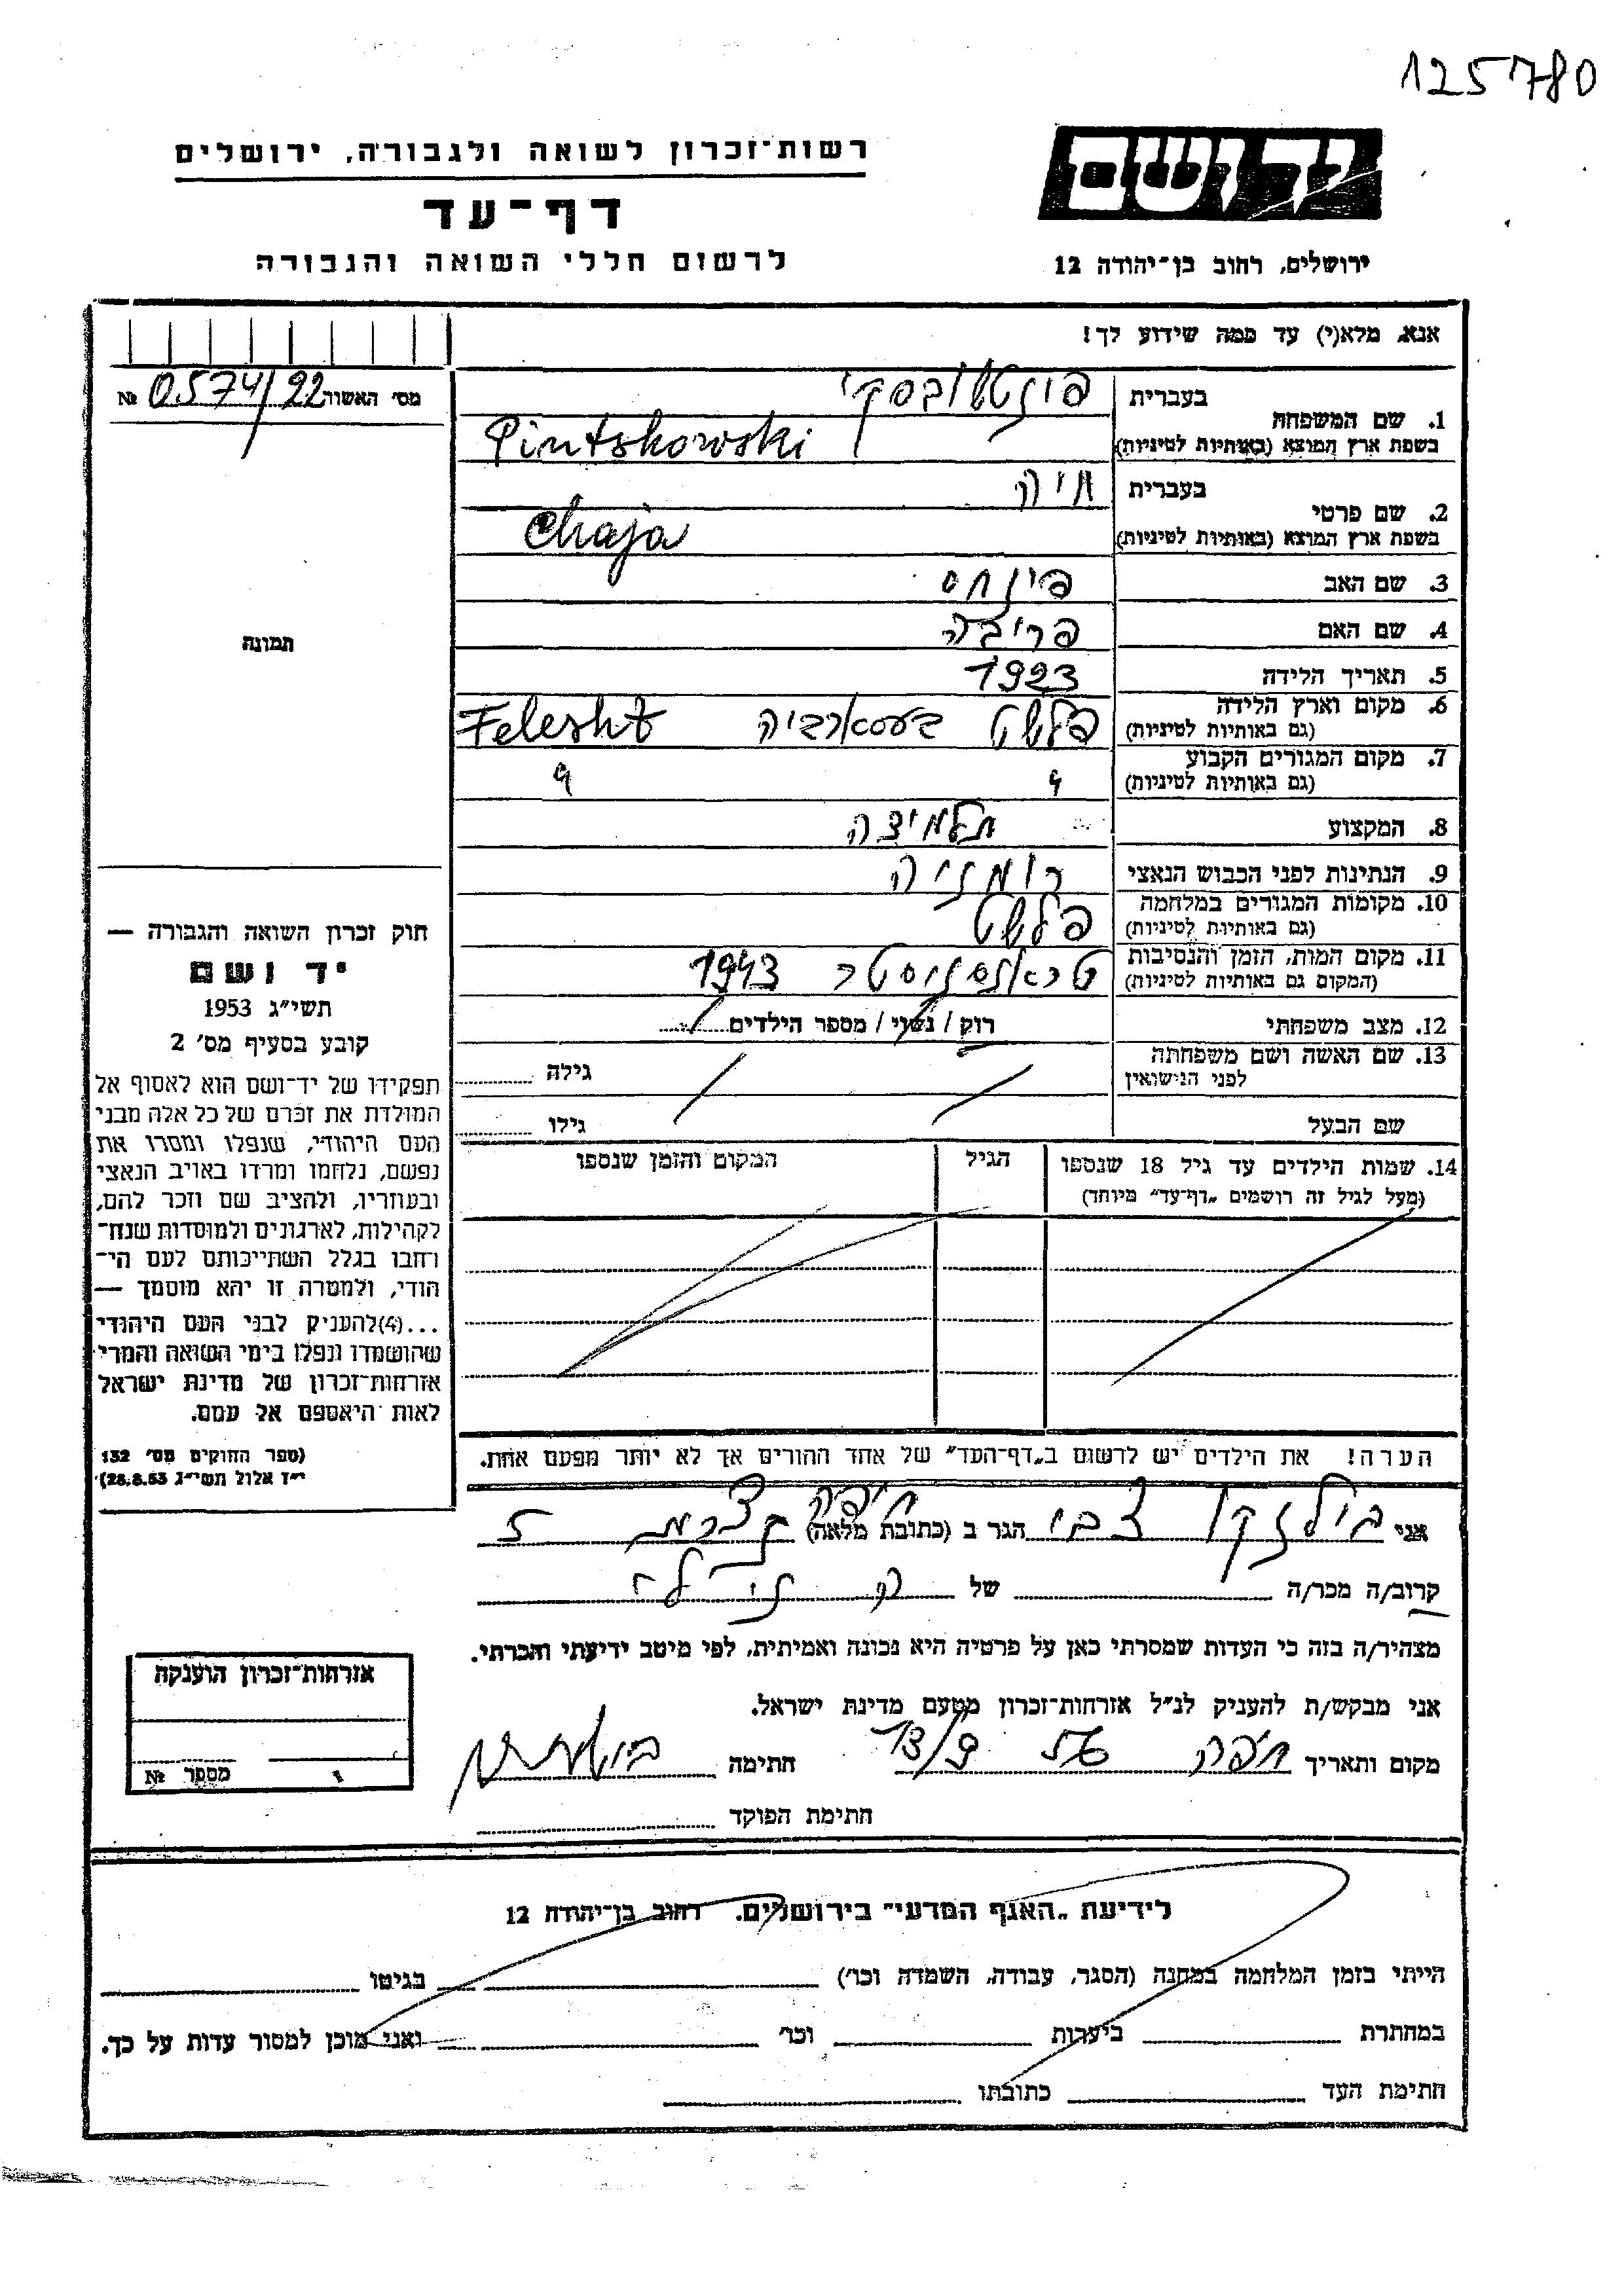 125780
יד ושם
רשות־זכרון לשואה ולגבורה, ירושלים
דף־עד
לרשום חללי השואה והגבורה
ירושלים, רחוב בן־יהודה 12
אנא, מלא(י) עד כמה שידוע לך!
מס' האשור 0574/22 №
בעברית
1. שם המשפחה
בשפת ארץ המוצא (באותיות לטיניות) Pintskowski
בעברית חיה
2. שם פרטי
בשפת ארץ המוצא (באותיות לטיניות) Chaja
3. שם האב פינחס
4. שם האם פריבה
5. תאריך הלידה 1923
6. מקום וארץ הלידה פלשט בעסארביה Felesht
(גם באותיות לטיניות)
7. מקום המגורים הקבוע
(גם באותיות לטיניות)
8. המקצוע תלמידה
9. הנתינות לפני הכבוש הנאצי רומניה
10. מקומות המגורים במלחמה פלשט
(גם באותיות לטיניות)
11. מקום המות, הזמן והנסיבות טראנסניסטר 1943
(המקום גם באותיות לטיניות)
12. מצב משפחתי רוק / נשוי / מספר הילדים
13. שם האשה ושם משפחתה
לפני הנישואין גילה
שם הבעל גילו
14. שמות הילדים עד גיל 18 שנספו הגיל המקום והזמן שנספו
(מעל לגיל זה רושמים „דף־עד״ מיוחד)
הערה! את הילדים יש לרשום ב„דף־העד״ של אחד ההורים אך לא יותר מפעם אחת.
תמונה
חוק זכרון השואה והגבורה —
יד ושם
תשי״ג 1953
קובע בסעיף מס' 2
תפקידו של יד־ושם הוא לאסוף אל
המולדת את זכרם של כל אלה מבני
העם היהודי, שנפלו ומסרו את
נפשם, נלחמו ומרדו באויב הנאצי
ובעוזריו, ולהציב שם וזכר להם,
לקהילות, לארגונים ולמוסדות שנח־
רחבו בגלל השתייכותם לעם הי־
הודי, ולמטרה זו יהא מוסמך —
...(4)להעניק לבני העם היהודי
שהושמדו ונפלו בימי השואה והמרי
אזרחות־זכרון של מדינת ישראל
לאות היאספם אל עמם.
(ספר החוקים מס' 132
י״ז אלול תשי״ג 28.8.53)
אני צבי הגר ב (כתובת מלאה) חיפה 5
קרוב/ה מכר/ה של
מצהיר/ה בזה כי העדות שמסרתי כאן על פרטיה היא נכונה ואמיתית, לפי מיטב ידיעתי והכרתי.
אני מבקש/ת להעניק לנ״ל אזרחות־זכרון מטעם מדינת ישראל.
מקום ותאריך חיפה 13/9 56 חתימה
חתימת הפוקד
אזרחות־זכרון הוענקה
מספר №
לידיעת „האגף המדעי״ בירושלים. רחוב בן־יהודה 12
הייתי בזמן המלחמה במחנה (הסגר, עבודה, השמדה וכו') בגיטו
במחתרת ביערות וכו' ואני מוכן למסור עדות על כך.
חתימת העד כתובתו